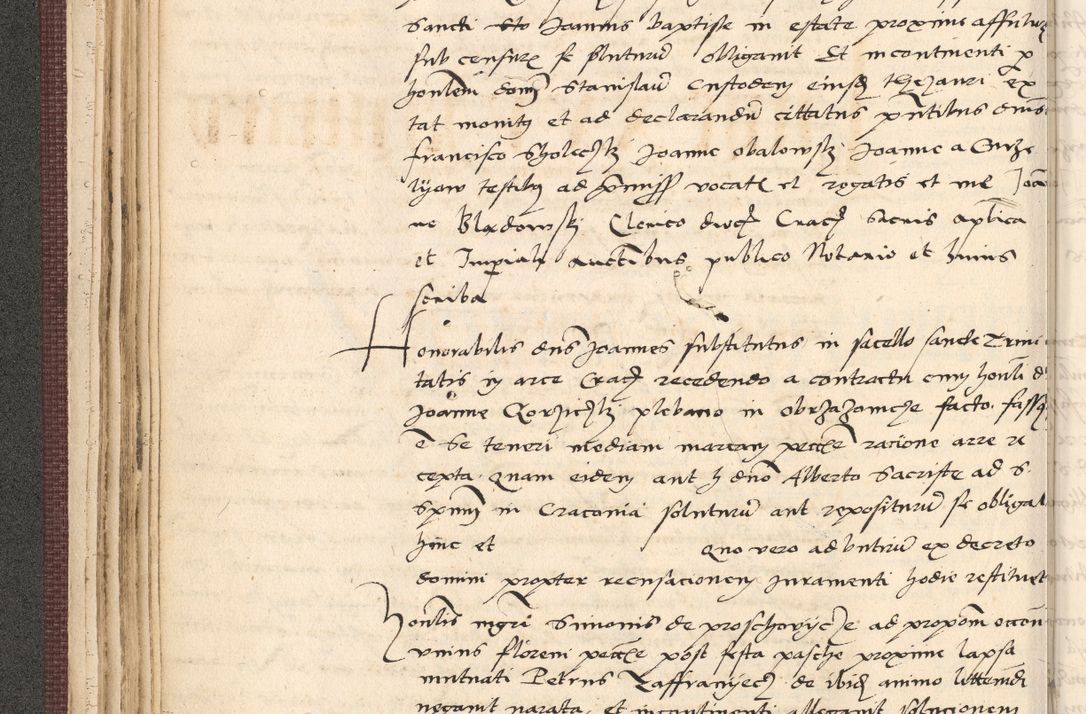 Sancti Sto Joannis baptiste in estate proxime affutur
sub censuris se soluturum obligavit Et incontinenti p
honlem domn Stanislaum Custodem eiusdem thezauri ex
tat monitus et ad declarandum citatus pntibus dnis
francisco Sholeczky Joanne obalowsky Joanne a Grze
lyow testibus ad premiss vocatis et rogatis et me Joan
ne Blędowsky Clerico dioc Crac Sacris aplica
et Imperiali auctoribus publico Notario et huius
scriba
Honorabilis dns Joannes substitutus in sacello sancte Trini
tatis in arce Crac recedendo a contractu cum honli d
Joanne Gorziczky plebano in obrzazowcze facto fassus
E se teneri mediam marcam peccie racione arre re
cepta quam eidem aut h dno Alberto Sacriste ad S
Spum in Craconia soluturum aut repositurum se obligat
hinc et quo vero ad butirum ex decreto
domini propter recusacionem Juramenti hodie restituet
Honlis mgri Simonis de proschovycze ad propom occon
unius floreni peccie post festa pasche proxime lapsa
mutuati Petrus Zaffranyecz de ibid animo littem
negavit narata et incontinenti allegavit solucionem